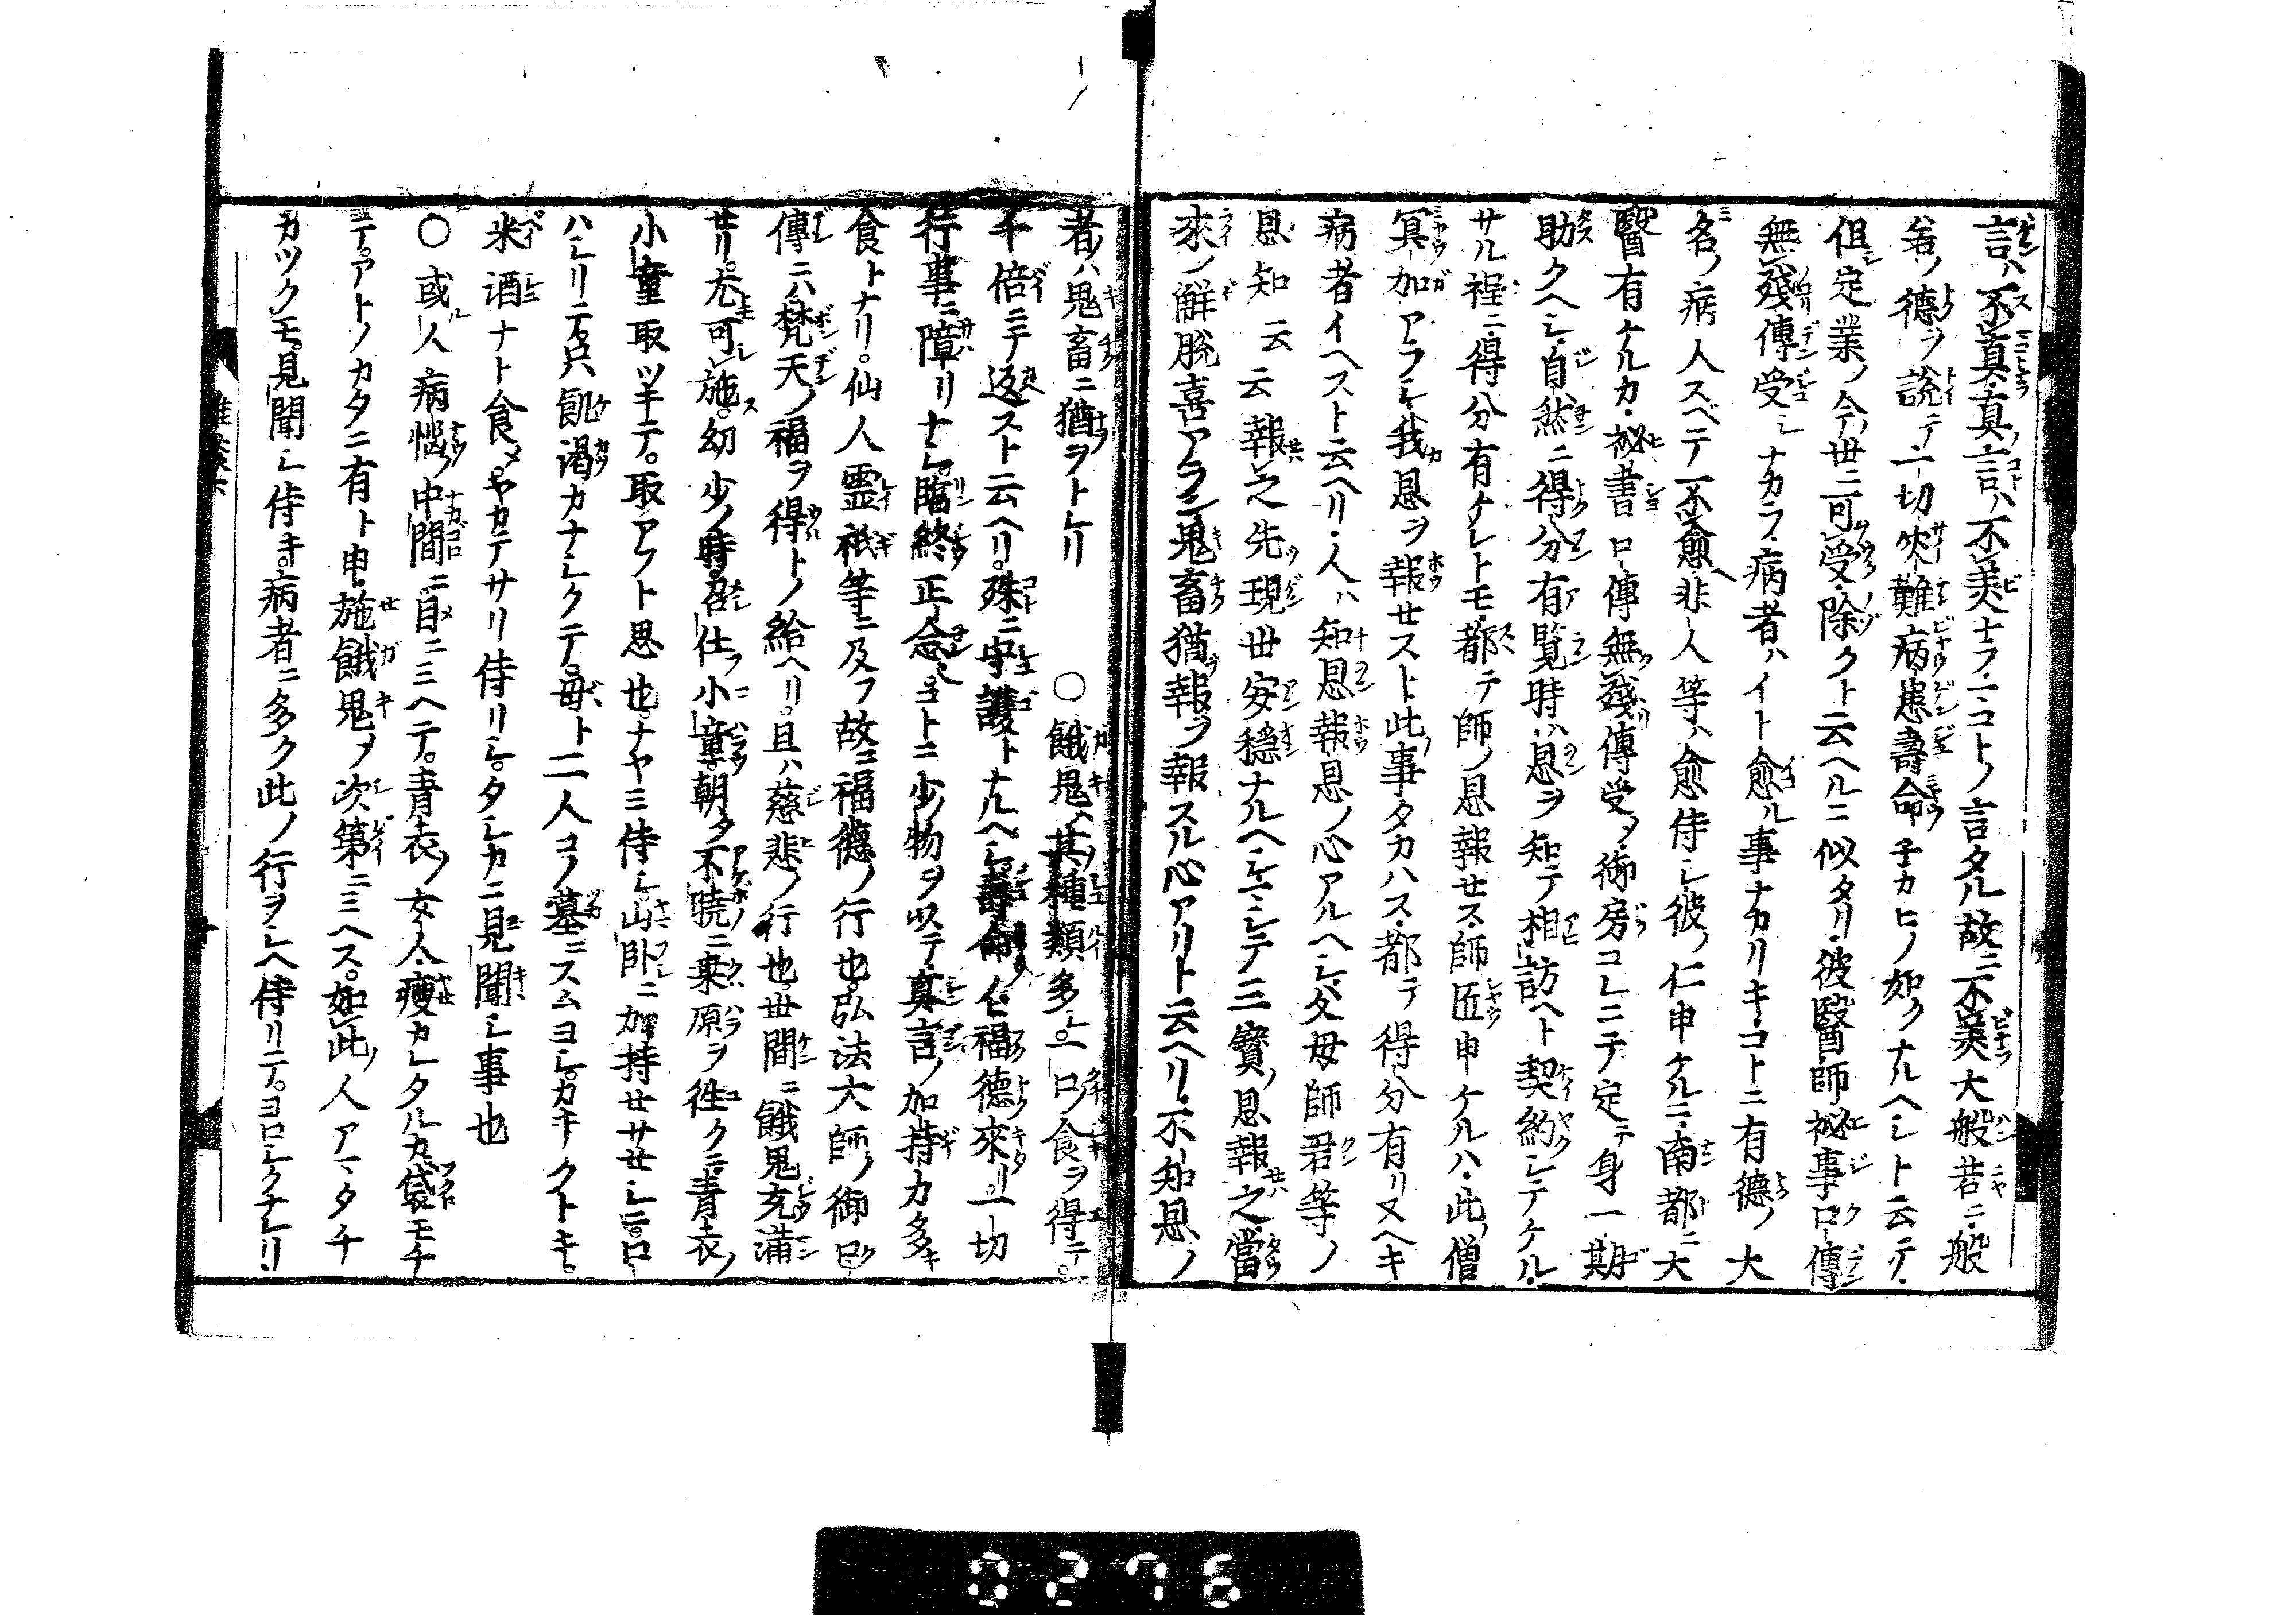 言ハ不真。真ノ言ハ不美ト云フ。ニコトノ言タル故ニ不美。大般若ニ般
若ノ徳ヲ説テ。一切災難病患壽命チカヒノ如クナルヘシト云テ。
但シ定業ノ今世ニ可受。除クト云ヘルニ似タリ。彼醫師祕事口傳
無殘傳受シナカラ。病者ハイト愈ル事ナカリキ。コトニ有徳ノ大
名ノ病人スベテ不愈。非人等ハ愈侍シ。彼ノ仁申ケルニ。南都ニ大
醫有ケルカ。祕書口傳無殘傳受ヲ。御房コレニテ定テ身一期
助クヘシ。自然ニ得分有覧時ハ。恩ヲ知テ相訪ヘト契約シテケル。
サル程ニ得分有ケレトモ。都テ師ノ恩報セス。師匠申ケルハ。此ノ僧
冥加アラシ。我恩ヲ報セスト。此事タカハス。都テ得分有リ又ヘキ
病者イヘスト云ヘリ。人ハ知恩報恩ノ心アルヘシ。父母師君等ノ
恩知 云云 報之先現世安穩ナルヘシ。ケニシテ三寳ノ恩報之。當
來ノ解脱喜アラン。鬼畜猶報ヲ報スル心アリト云ヘリ。不知恩ノ
者ハ鬼畜ニ猶ヲトレリ ○餓鬼ハ其ノ種類多シ。一口ノ食ヲ得テ。
千倍ニテ返スト云ヘリ。殊ニ守護トナルヘシ。壽命ノヒ福徳來リ。一切
行事ニ障リナシ。臨終正念ニ。ヨトニ少ノ物ヲ以テ。真言ノ加持カ多キ
食トナリ。仙人霊祇等ニ及フ故ニ福徳ノ行也。弘法大師ノ御口
傳ニハ梵天ノ福ヲ得トノ給ヘリ。且ハ慈悲ノ行也。世間ニ餓鬼充満
セリ。尤可施。幼少ノ時。召仕フ小童。朝タ不暁ニ桒原ヲ徃クニ。青衣ノ
小童取ツキテ。取アフト思也。ナヤミ侍シ。山卧ニ加持セサセシニ。口
ハシリニ。只飢渇カナシクテ。母ト二人コノ墓ニスムヨシ。カキクトキ。
米酒ナト食メ。ヤカテサリ侍リシ。タシカニ見聞シ事也
○或人病惱ノ中間ニ。目ニミヘテ。青衣ノ女人。痩カレタルカ。袋モチ
テ。アトノカタニ有ト申。施餓鬼ヲ次第ニミヘス。如此ノ人アマタチ
カツクモ。見聞シ侍キ。病者ニ多ク此ノ行ヲシヘ侍リテ。ヨロシクナレリ
0276